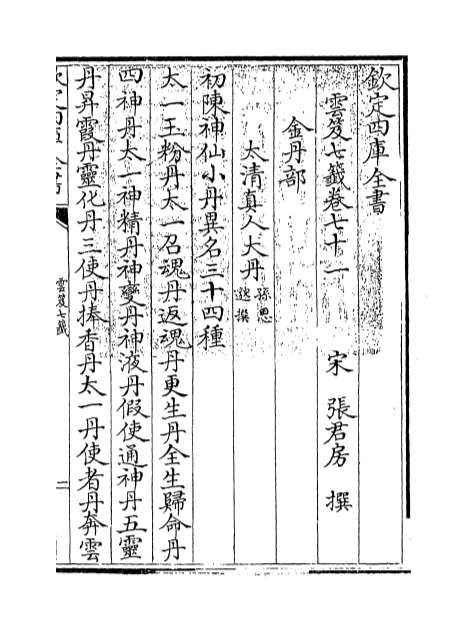 欽定四庫全書
雲笈七籤卷七十一
宋 張君房 撰
金丹部
太清真人大丹孫思邈撰
初陳神仙小丹異名三十四種
太一玉粉丹太一召魂丹返魂丹更生丹全生歸命丹
四神丹太一神精丹神變丹神液丹假使通神丹五靈
丹昇霞丹靈化丹三使丹捧香丹太一丹使者丹奔雲
雲笈七籤